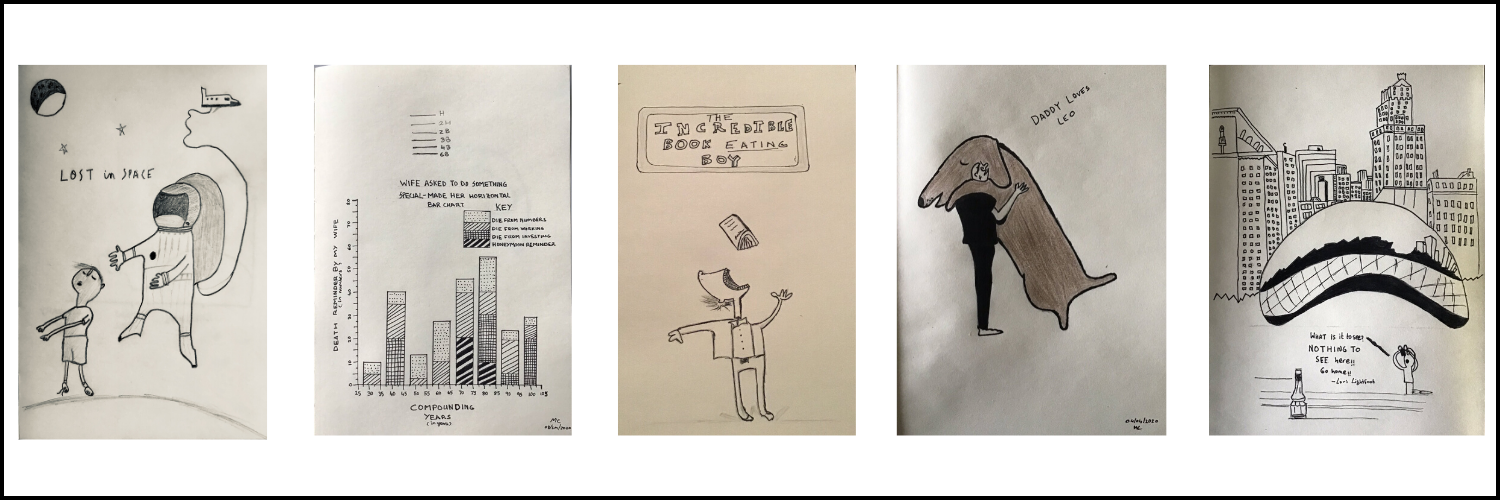 LOST in SPACE
H
2H
2B
3B
4B
6B
WIFE ASKED TO DO SOMETHING
SPECIAL-MADE HER HORIZONTAL
BAR CHART
KEY
DIE FROM NUMBERS
DIE FROM WORKING
DIE FROM INVESTING
HONEYMOON REMINDER
DEATH REMINDER BY MY WIFE
(in numbers)
80
70
60
50
40
30
20
10
0
25 30 35 40 45 50 55 60 65 70 75 80 85 90 95 100 105
COMPOUNDING
YEARS
(in years)
MC
THE
INCREDIBLE
BOOK EATING
BOY
DADDY LOVES
LEO
04/04/2020
MC
WHAT IS it to see?
NOTHING TO
SEE here!!
Go home!!
-Lori Lightfoot